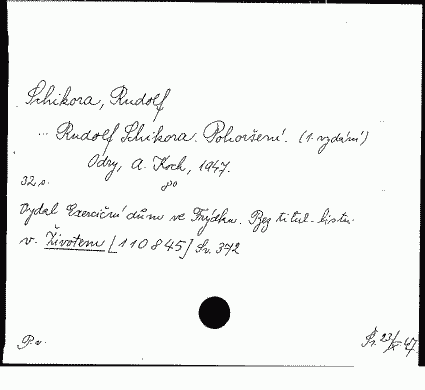 Schikora, Rudolf
... Rudolf Schikora. Pohoršení. (1. vydání)
Odry, A. Koch, 1947.
32 s. 8°
Vydal Exerciční dům ve Frýdku. Bez titul. listu
v. Životem [110845] Sv. 372
P.v. Př. 23/X 47